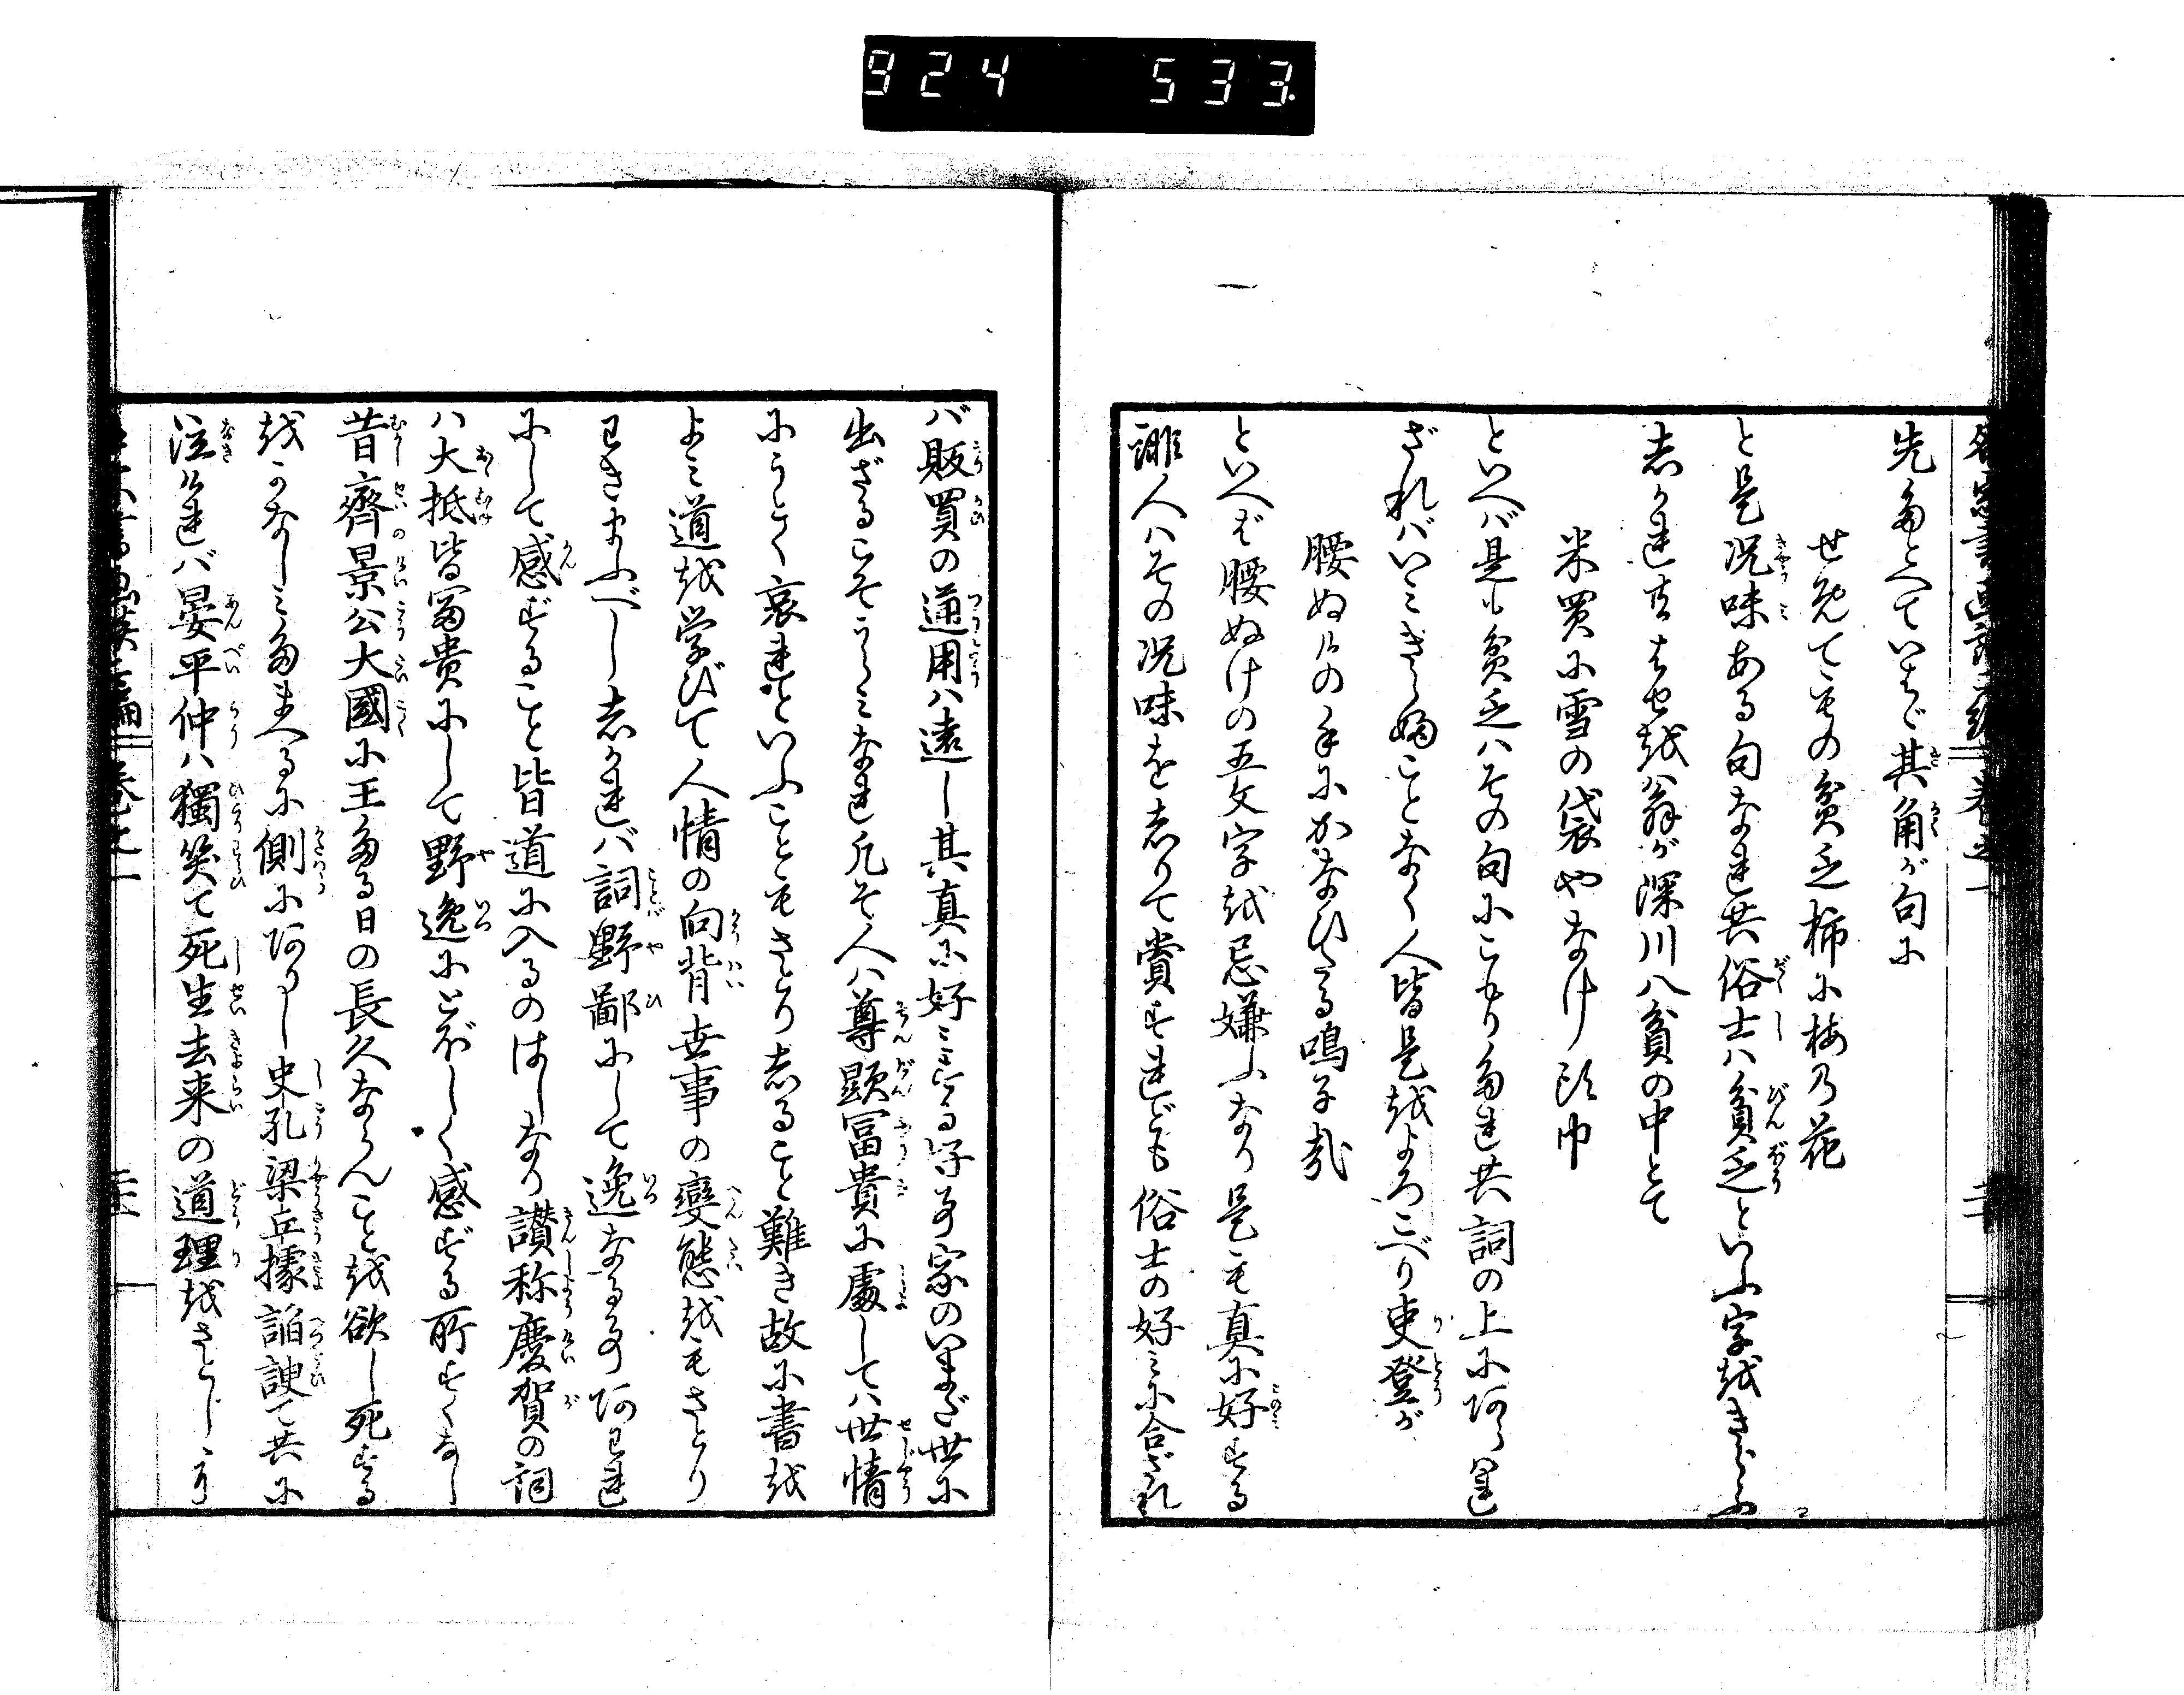 924 533
先たとへていはゞ其角が句に
世免てその貧乏柿に梅乃花
と是况味ある句なれ共俗士ハ貧乏といふ字をきらふ
しかれ共はせを翁が深川八貧の中とて
米買に雪の袋やなげ頭巾
といへバ是も貧乏ハその句にこもりたれ共詞の上にあらハれ
ざれバいミきらふことなく人皆是をよろこべり吏登が
腰ぬけの手にかなひたる鳴子哉
といへど腰ぬけの五文字を忌嫌ふなり是も真に好する
誹人ハその况味をしりて賞すれども俗士の好ミに合ざれ
バ販買の通用ハ遠し其真に好ミする好事家のいまだ世に
出ざるこそうらミなれ凡そ人ハ尊顕冨貴に處してハ世情
にうとく哀れといふこともさとりしること難き故に書を
よミ道を学びて人情の向背世事の變態をもさとり
わきまふべししかれバ詞野鄙にして逸なる事あわれ
にして感ずること皆道に入るのはしなり讃称慶賀の詞
ハ大抵皆冨貴にして野逸にとぼしく感ずる所すくなし
昔齊景公大國に王たる日の長久ならんことを欲し死する
をかなしミたまへるに側にありし史孔梁丘據諂諛て共に
泣けれバ晏平仲ハ獨笑て死生去来の道理をさとしけり